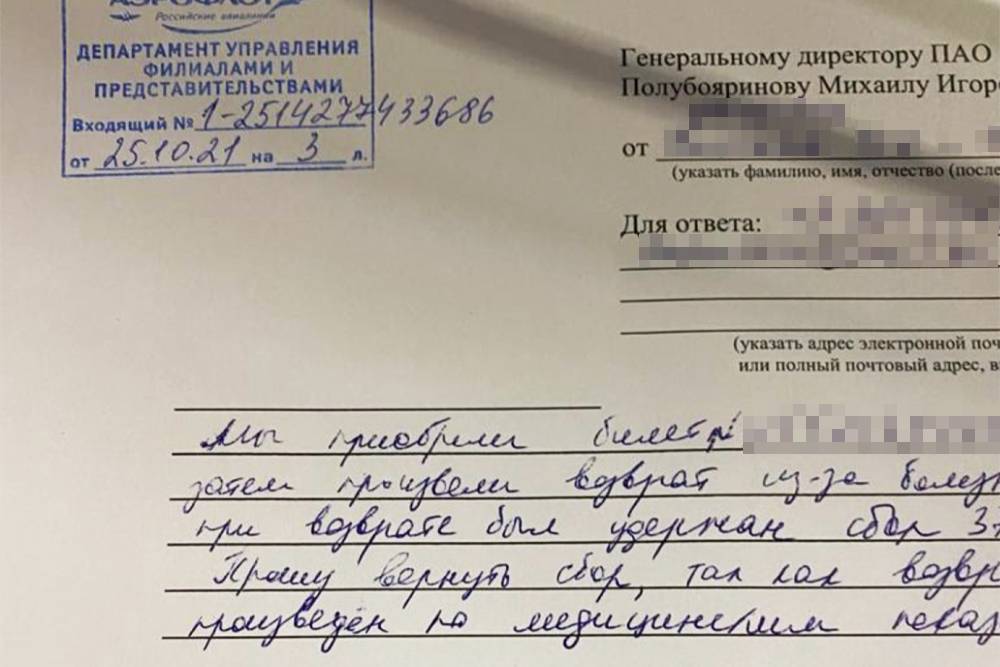 АЭРОФЛОТ
Российские авиалинии
ДЕПАРТАМЕНТ УПРАВЛЕНИЯ
ФИЛИАЛАМИ И
ПРЕДСТАВИТЕЛЬСТВАМИ
Входящий № 1-2514277433686
от 25.10.21 на 3 л.
Генеральному директору ПАО
Полубояринову Михаилу Игор
от
(указать фамилию, имя, отчество (после
Для ответа:
(указать адрес электронной поч
или полный почтовый адрес, в
Мы приобрели билеты
затем произвели возврат из-за болез
при возврате был удержан сбор 3
Прошу вернуть сбор, так как возвр
произведён по медицинским показ